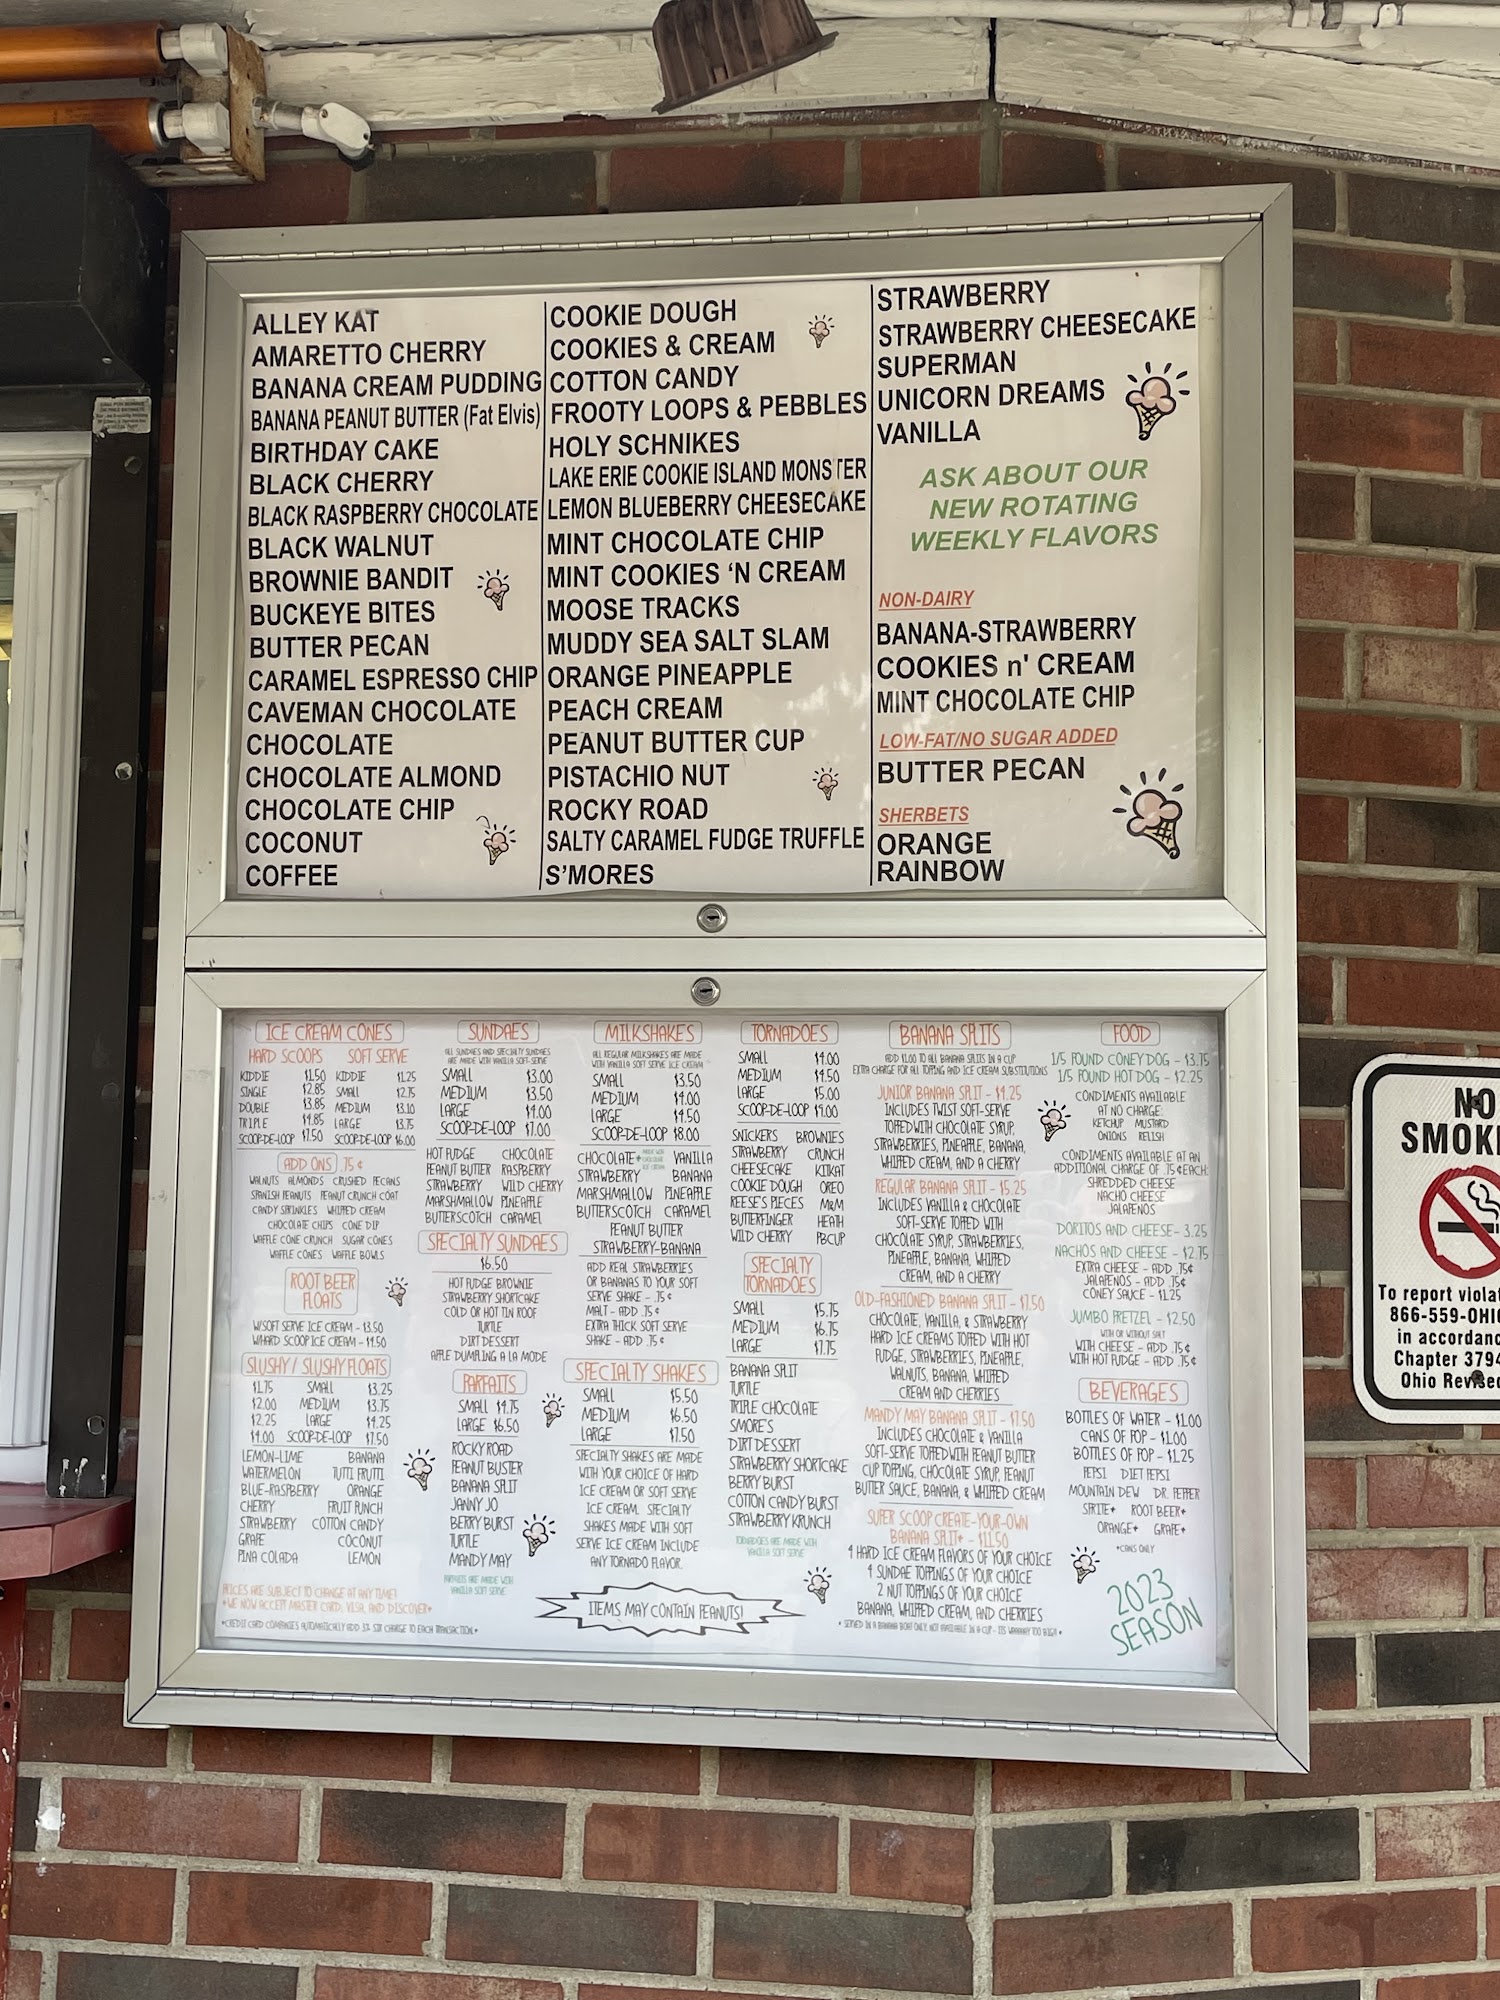 ALLEY KAT
AMARETTO CHERRY
BANANA CREAM PUDDING
BANANA PEANUT BUTTER (Fat Elvis)
BIRTHDAY CAKE
BLACK CHERRY
BLACK RASPBERRY CHOCOLATE
BLACK WALNUT
BROWNIE BANDIT
BUCKEYE BITES
BUTTER PECAN
CARAMEL ESPRESSO CHIP
CAVEMAN CHOCOLATE
CHOCOLATE
CHOCOLATE ALMOND
CHOCOLATE CHIP
COCONUT
COFFEE
COOKIE DOUGH
COOKIES & CREAM
COTTON CANDY
FROOTY LOOPS & PEBBLES
HOLY SCHNIKES
LAKE ERIE COOKIE ISLAND MONSTER
LEMON BLUEBERRY CHEESECAKE
MINT CHOCOLATE CHIP
MINT COOKIES 'N CREAM
MOOSE TRACKS
MUDDY SEA SALT SLAM
ORANGE PINEAPPLE
PEACH CREAM
PEANUT BUTTER CUP
PISTACHIO NUT
ROCKY ROAD
SALTY CARAMEL FUDGE TRUFFLE
S'MORES
STRAWBERRY
STRAWBERRY CHEESECAKE
SUPERMAN
UNICORN DREAMS
VANILLA
ASK ABOUT OUR
NEW ROTATING
WEEKLY FLAVORS
NON-DAIRY
BANANA-STRAWBERRY
COOKIES n' CREAM
MINT CHOCOLATE CHIP
LOW-FAT/NO SUGAR ADDED
BUTTER PECAN
SHERBETS
ORANGE
RAINBOW
ICE CREAM CONES
HARD SCOOPS SOFT SERVE
KIDDIE $1.50 KIDDIE $1.25
SINGLE $2.85 SMALL $2.75
DOUBLE $3.85 MEDIUM $3.10
TRIPLE $4.85 LARGE $3.75
SCOOP-DE-LOOP $7.50 SCOOP-DE-LOOP $6.00
ADD ONS .75 ¢
WALNUTS ALMONDS CRUSHED PECANS
SPANISH PEANUTS PEANUT CRUNCH COAT
CANDY SPRINKLES WHIPPED CREAM
CHOCOLATE CHIPS CONE DIP
WAFFLE CONE CRUNCH SUGAR CONES
WAFFLE CONES WAFFLE BOWLS
ROOT BEER
FLOATS
W/SOFT SERVE ICE CREAM - $3.50
W/HARD SCOOP ICE CREAM - $4.50
SLUSHY / SLUSHY FLOATS
$1.75 SMALL $3.25
$2.00 MEDIUM $3.75
$2.25 LARGE $4.25
$4.00 SCOOP-DE-LOOP $7.50
LEMON-LIME BANANA
WATERMELON TUTTI FRUTTI
BLUE-RASPBERRY ORANGE
CHERRY FRUIT PUNCH
STRAWBERRY COTTON CANDY
GRAPE COCONUT
PINA COLADA LEMON
PRICES ARE SUBJECT TO CHANGE AT ANY TIME!
*WE NOW ACCEPT MASTER CARD, VISA, AND DISCOVER*
*CREDIT CARD COMPANIES AUTOMATICALLY ADD 3% SUR CHARGE TO EACH TRANSACTION.*
SUNDAES
ALL SUNDAES AND SPECIALTY SUNDAES
ARE MADE WITH VANILLA SOFT-SERVE
SMALL $3.00
MEDIUM $3.50
LARGE $4.00
SCOOP-DE-LOOP $7.00
HOT FUDGE CHOCOLATE
PEANUT BUTTER RASPBERRY
STRAWBERRY WILD CHERRY
MARSHMALLOW PINEAPPLE
BUTTERSCOTCH CARAMEL
SPECIALTY SUNDAES
$6.50
HOT FUDGE BROWNIE
STRAWBERRY SHORTCAKE
COLD OR HOT TIN ROOF
TURTLE
DIRT DESSERT
APPLE DUMPLING A LA MODE
PARFAITS
SMALL $4.75
LARGE $6.50
ROCKY ROAD
PEANUT BUSTER
BANANA SPLIT
JANNY JO
BERRY BURST
TURTLE
MANDY MAY
PARFAITS ARE MADE WITH
VANILLA SOFT SERVE
MILKSHAKES
ALL REGULAR MILKSHAKES ARE MADE
WITH VANILLA SOFT SERVE ICE CREAM
SMALL $3.50
MEDIUM $4.00
LARGE $4.50
SCOOP-DE-LOOP $8.00
CHOCOLATE* MADE WITH CHOCOLATE ICE CREAM VANILLA
STRAWBERRY BANANA
MARSHMALLOW PINEAPPLE
BUTTERSCOTCH CARAMEL
PEANUT BUTTER
STRAWBERRY-BANANA
ADD REAL STRAWBERRIES
OR BANANAS TO YOUR SOFT
SERVE SHAKE - .75 ¢
MALT - ADD .75 ¢
EXTRA THICK SOFT SERVE
SHAKE - ADD .75 ¢
SPECIALTY SHAKES
SMALL $5.50
MEDIUM $6.50
LARGE $7.50
SPECIALTY SHAKES ARE MADE
WITH YOUR CHOICE OF HARD
ICE CREAM OR SOFT SERVE
ICE CREAM. SPECIALTY
SHAKES MADE WITH SOFT
SERVE ICE CREAM INCLUDE
ANY TORNADO FLAVOR.
ITEMS MAY CONTAIN PEANUTS!
TORNADOES
SMALL $4.00
MEDIUM $4.50
LARGE $5.00
SCOOP-DE-LOOP $9.00
SNICKERS BROWNIES
STRAWBERRY CRUNCH
CHEESECAKE KITKAT
COOKIE DOUGH OREO
REESE'S PIECES M&M
BUTTERFINGER HEATH
WILD CHERRY PBCUP
SPECIALTY
TORNADOES
SMALL $5.75
MEDIUM $6.75
LARGE $7.75
BANANA SPLIT
TURTLE
TRIPLE CHOCOLATE
SMORE'S
DIRT DESSERT
STRAWBERRY SHORTCAKE
BERRY BURST
COTTON CANDY BURST
STRAWBERRY KRUNCH
TORNADOES ARE MADE WITH
VANILLA SOFT SERVE
BANANA SPLITS
ADD $1.00 TO ALL BANANA SPLITS IN A CUP
EXTRA CHARGE FOR ALL TOPPING AND ICE CREAM SUBSTITUTIONS
JUNIOR BANANA SPLIT - $4.25
INCLUDES TWIST SOFT-SERVE
TOPPED WITH CHOCOLATE SYRUP,
STRAWBERRIES, PINEAPPLE, BANANA,
WHIPPED CREAM, AND A CHERRY
REGULAR BANANA SPLIT - $5.25
INCLUDES VANILLA & CHOCOLATE
SOFT-SERVE TOPPED WITH
CHOCOLATE SYRUP, STRAWBERRIES,
PINEAPPLE, BANANA, WHIPPED
CREAM, AND A CHERRY
OLD-FASHIONED BANANA SPLIT - $7.50
CHOCOLATE, VANILLA, & STRAWBERRY
HARD ICE CREAMS TOPPED WITH HOT
FUDGE, STRAWBERRIES, PINEAPPLE,
WALNUTS, BANANA, WHIPPED
CREAM AND CHERRIES
MANDY MAY BANANA SPLIT - $7.50
INCLUDES CHOCOLATE & VANILLA
SOFT-SERVE TOPPED WITH PEANUT BUTTER
CUP TOPPING, CHOCOLATE SYRUP, PEANUT
BUTTER SAUCE, BANANA, & WHIPPED CREAM
SUPER SCOOP CREATE-YOUR-OWN
BANANA SPLIT* - $11.50
4 HARD ICE CREAM FLAVORS OF YOUR CHOICE
4 SUNDAE TOPPINGS OF YOUR CHOICE
2 NUT TOPPINGS OF YOUR CHOICE
BANANA, WHIPPED CREAM, AND CHERRIES
* SERVED IN A BANANA BOAT ONLY, NOT AVAILABLE IN A CUP - ITS WAAAAAY TOO BIG!! *
FOOD
1/5 POUND CONEY DOG - $3.75
1/5 POUND HOT DOG - $2.25
CONDIMENTS AVAILABLE
AT NO CHARGE:
KETCHUP MUSTARD
ONIONS RELISH
CONDIMENTS AVAILABLE AT AN
ADDITIONAL CHARGE OF .75 ¢ EACH:
SHREDDED CHEESE
NACHO CHEESE
JALAPENOS
DORITOS AND CHEESE- 3.25
NACHOS AND CHEESE - $2.75
EXTRA CHEESE - ADD .75¢
JALAPENOS - ADD .75¢
CONEY SAUCE - $1.25
JUMBO PRETZEL - $2.50
WITH OR WITHOUT SALT
WITH CHEESE - ADD .75¢
WITH HOT FUDGE - ADD .75¢
BEVERAGES
BOTTLES OF WATER - $1.00
CANS OF POP - $1.00
BOTTLES OF POP - $1.25
PEPSI DIET PEPSI
MOUNTAIN DEW DR. PEPPER
SPRITE* ROOT BEER*
ORANGE* GRAPE*
*CANS ONLY
2023
SEASON
NO
SMOKI
To report violat
866-559-OHI
in accordanc
Chapter 3794
Ohio Revised